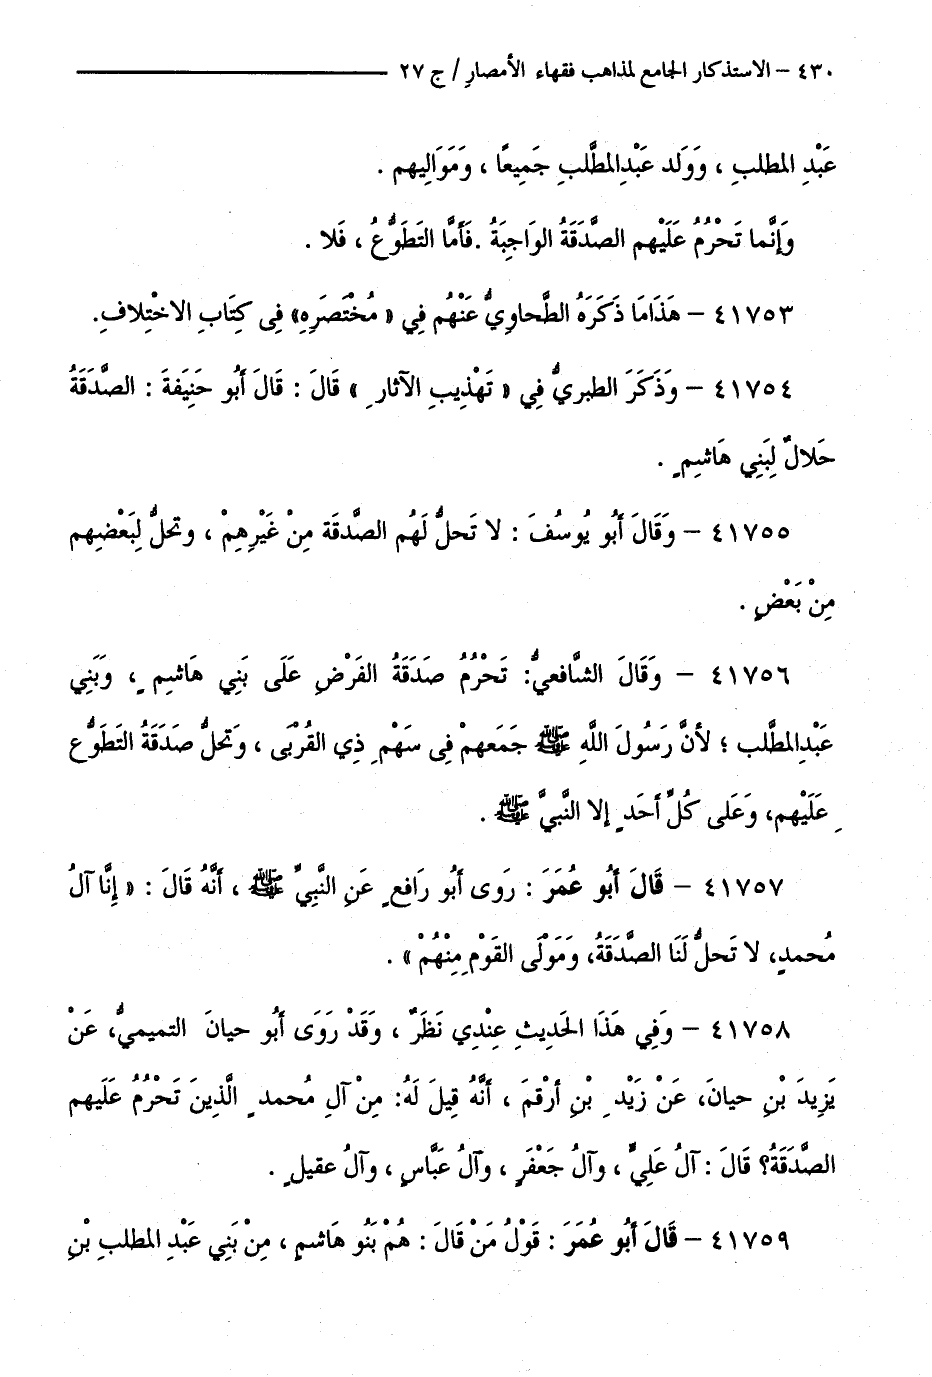 ٤٣٠ – الاستذكار الجامع لمذاهب فقهاء الأمصارِ / ج ٢٧
عَبْدِ المطلبِ ، وَوَلَد عَبْدِالمطَّلبِ جَميعًا ، وَمَوَالِيهم .
وَإنَّما تَحْرُمُ عَلَيْهم الصَّدَقَةُ الوَاجِبَةُ .فَأمَّا التَطَوُّعُ ، فَلا .
٤١٧٥٣ – هَذَامَا ذَكَرَهُ الطَّحاوِيُّ عَنْهُم فِي « مُخْتَصَرِهِ» فِى كِتَابِ الاخْتِلافِ.
٤١٧٥٤ – وَذَكَرَ الطبريُّ فِي « تَهْذِيبِ الآثارِ » قَالَ : قَالَ أَبُو حَنِيفةَ : الصَّدَقَةُ
حَلالٌ لِبَنِي هَاشِمٍ .
٤١٧٥٥ – وَقَالَ أَبُو يُوسُفَ : لا تَحلُّ لَهُم الصَّدقَة مِنْ غَيْرِهِمْ ، وتحلُّ لِبَعْضِهم
مِنْ بَعْضٍ .
٤١٧٥٦ – وَقَالَ الشَّافعيُّ: تَحْرُمُ صَدَقَةُ الفَرْضِ عَلَى بَنِي هَاشِمٍ ، وَبَنِي
عَبْدِالمطَّلب ؛ لأنَّ رَسُولَ اللَّهِ ﷺ جَمَعهمْ فِى سَهْمِ ذِي القُرْبَى ، وَتحلُّ صَدَقَةُ التَطَوُّع
عَلَيْهِم، وَعَلى كُلِّ أَحَدٍ إلا النَّبيَّ ﷺ .
٤١٧٥٧ – قَالَ أَبُو عُمَرَ : رَوَى أَبُو رَافِعٍ عَنِ النَّبِيِّ ﷺ ، أَنَّهُ قَالَ : « إِنَّا آلُ
مُحمدٍ، لا تَحلُّ لَنَا الصَّدَقَةُ، وَمَوْلَى القَوْمِ مِنْهُمْ » .
٤١٧٥٨ – وَفِي هَذَا الحَديثِ عِنْدِي نَظَرٌ ، وَقَدْ رَوَى أَبُو حيانَ التميميُّ، عَنْ
يَزِيدَ بْنِ حيانَ، عَنْ زَيْدِ بْنِ أرْقمَ ، أَنَّهُ قِيلَ لَهُ: مِنْ آلِ مُحمدٍ الَّذِينَ تَحْرُمُ عَلَيهم
الصَّدَقَةُ؟ قَالَ : آلُ عَلِيٍّ ، وَآلُ جَعْفَرٍ ، وَآلُ عَبَّاسٍ ، وَآلُ عقيلٍ .
٤١٧٥٩ – قَالَ أَبُو عُمَرَ : قَوْلُ مَنْ قَالَ : هُمْ بَنُو هَاشمٍ ، مِنْ بَنِي عَبْدِ المطلبِ بْنِ